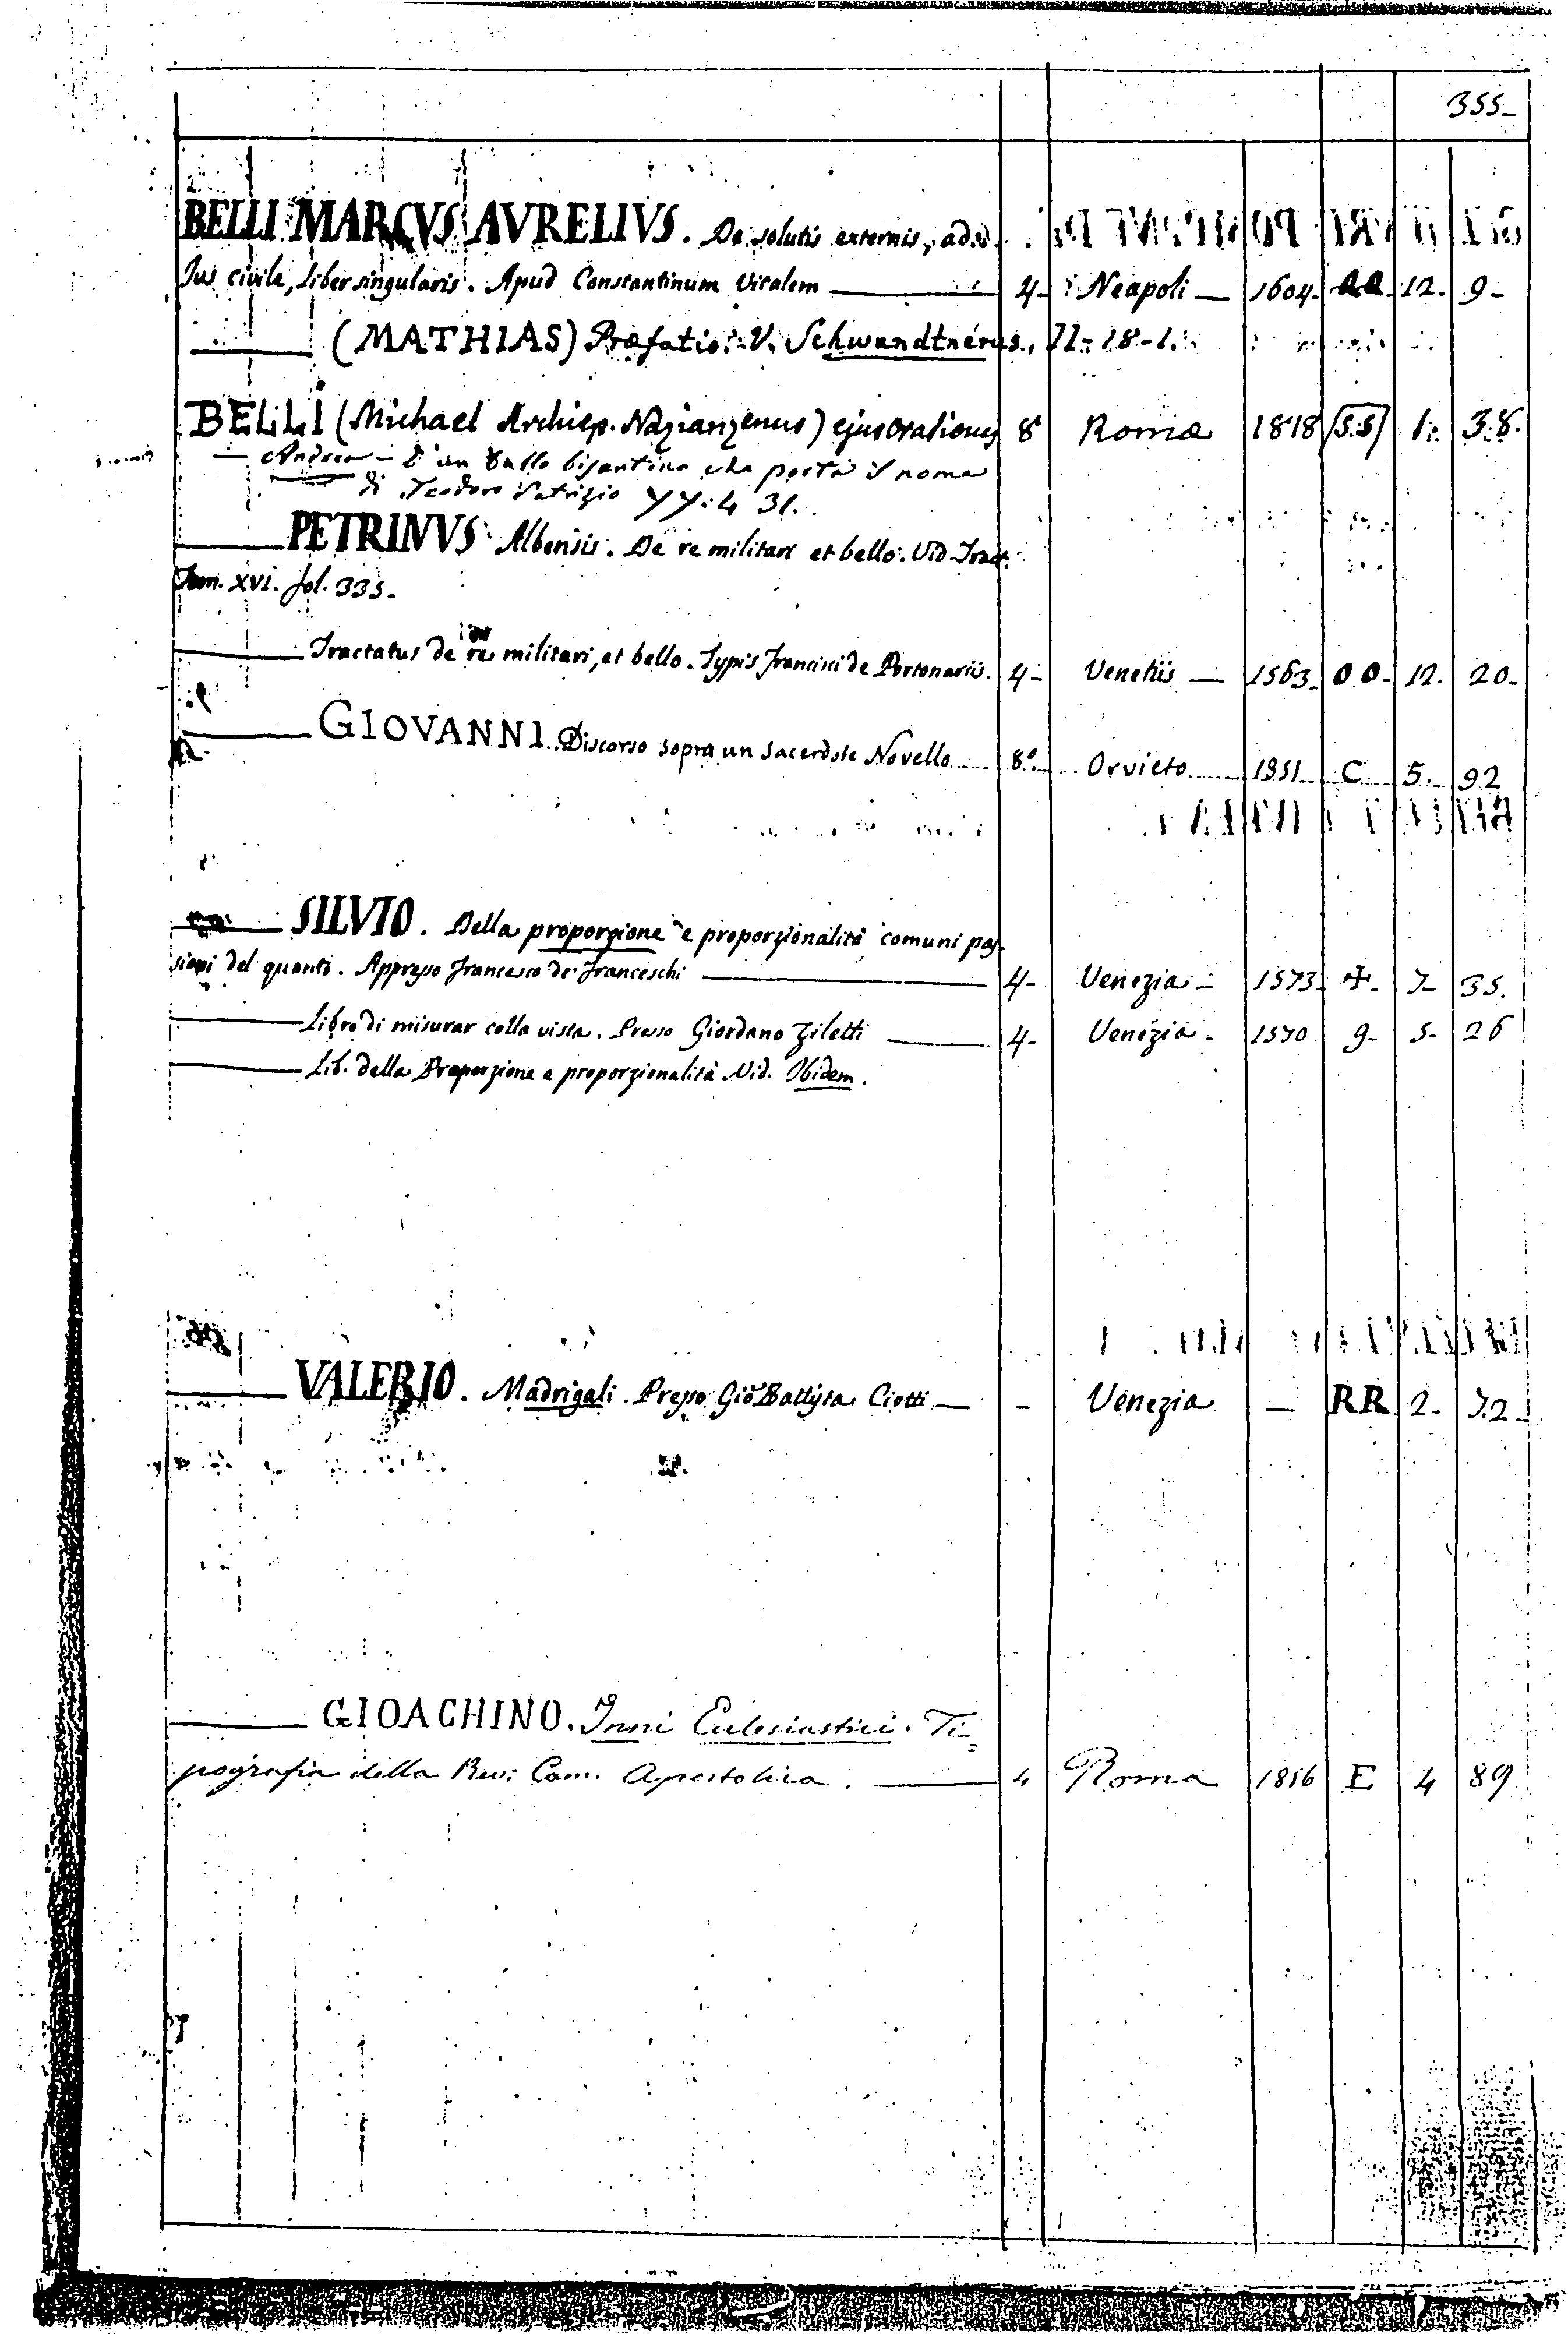 355-
BELLI MARCVS AVRELIVS. De solutis externis, ad
Jus civile, Liber singularis. Apud Constantinum Vitalem — 4- Neapoli — 1604- 12. 9-
— (MATHIAS) Præfatio. V. Schwandtnerus. II-18-1.
BELLI (Michael Archiep. Nazianzenus) ejus Orationes 8 Romæ 1818 S.S 1. 38.
— Andrea — D'un bollo bisantino che porta il nome
di Teodoro Patrizio YY. 4 31.
— PETRINVS Albensis. De re militari et bello. Vid. Tract.
Tom. XVI. fol. 335-
— Tractatus de re militari, et bello. Typis Francisci de Portonariis. 4- Venetiis — 1563- OO- 12. 20-
— GIOVANNI. Discorso sopra un sacerdote Novello 8º Orvieto 1851 C 5. 92
— SILVIO. Della proporzione e proporzionalità comuni pas-
sioni del quanto. Appresso Francesco de' Franceschi — 4- Venezia - 1573- ✠- 7- 35.
— Libro di misurar colla vista. Presso Giordano Ziletti — 4- Venezia - 1570 9- 5- 26
— Lib. della Proporzione e proporzionalità Vid. Ibidem.
— VALERIO. Madrigali. Presso Gio Battista Ciotti — - Venezia — RR 2- 72-
— GIOACHINO. Inni Ecclesiastici. Ti=
pografia della Rev. Cam. Apostolica. — 4 Roma 1856 E 4 89